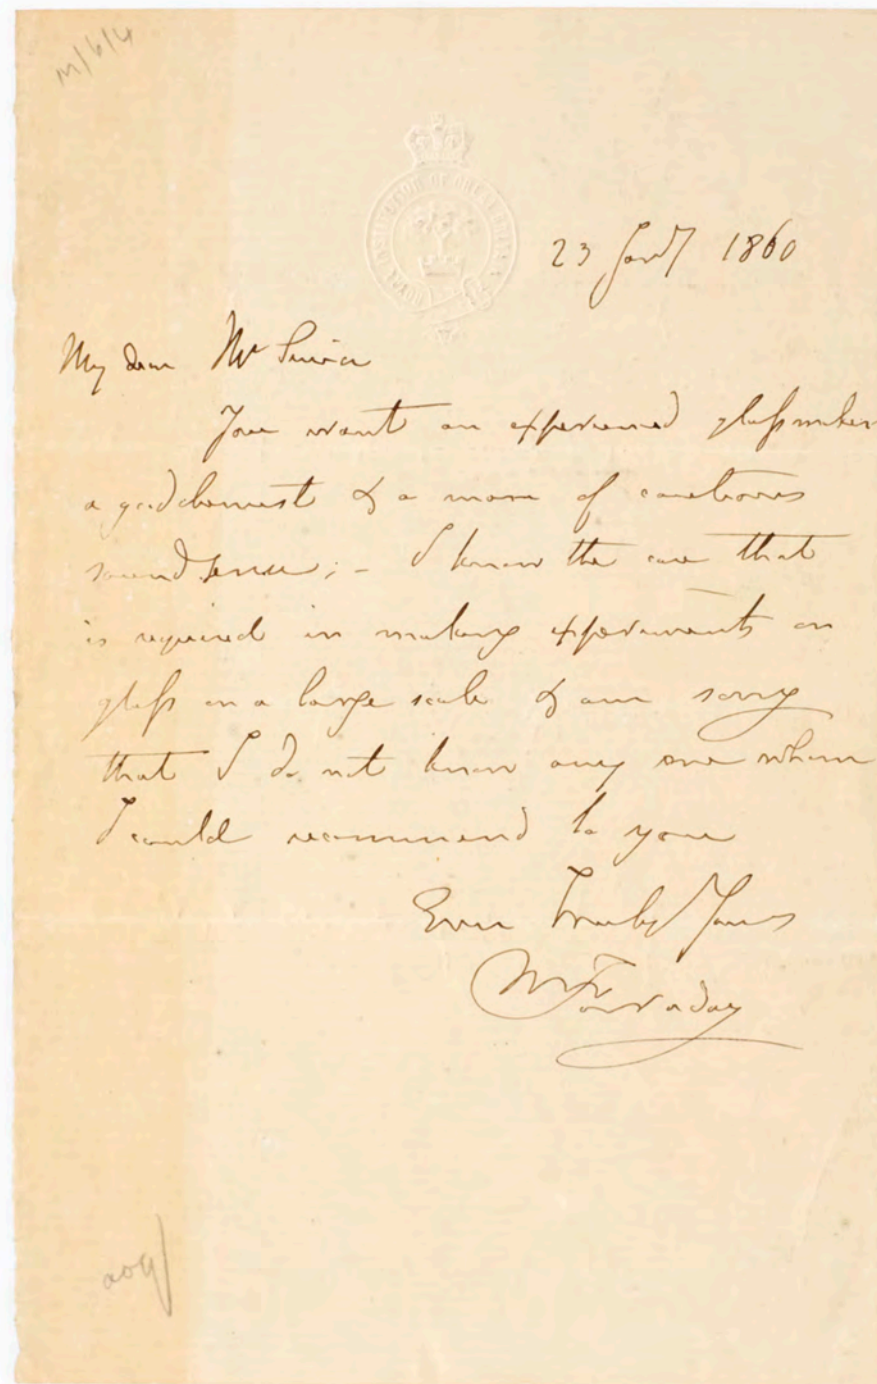 m/6/4
ROYAL INSTITUTION OF GREAT BRITAIN
23 Jany 1860
My dear Mr
You want an experienced glassmaker
a good chemist & a man of cautious
sound sense; - I know the care that
is required in making experiments on
glass on a large scale & am sorry
that I do not know any one whom
I could recommend to you
Ever Truly Yours
M Faraday